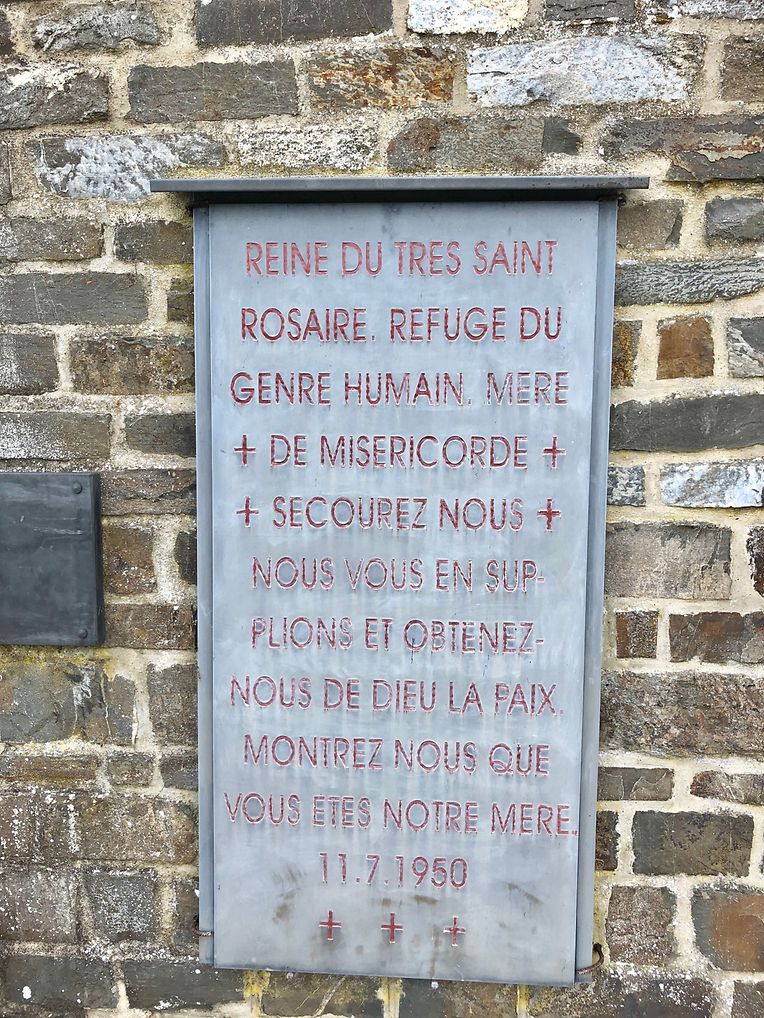 REINE DU TRES SAINT
ROSAIRE. REFUGE DU
GENRE HUMAIN. MERE
+ DE MISERICORDE +
+ SECOUREZ NOUS +
NOUS VOUS EN SUP-
PLIONS ET OBTENEZ-
NOUS DE DIEU LA PAIX.
MONTREZ NOUS QUE
VOUS ETES NOTRE MERE.
11.7.1950
+ + +